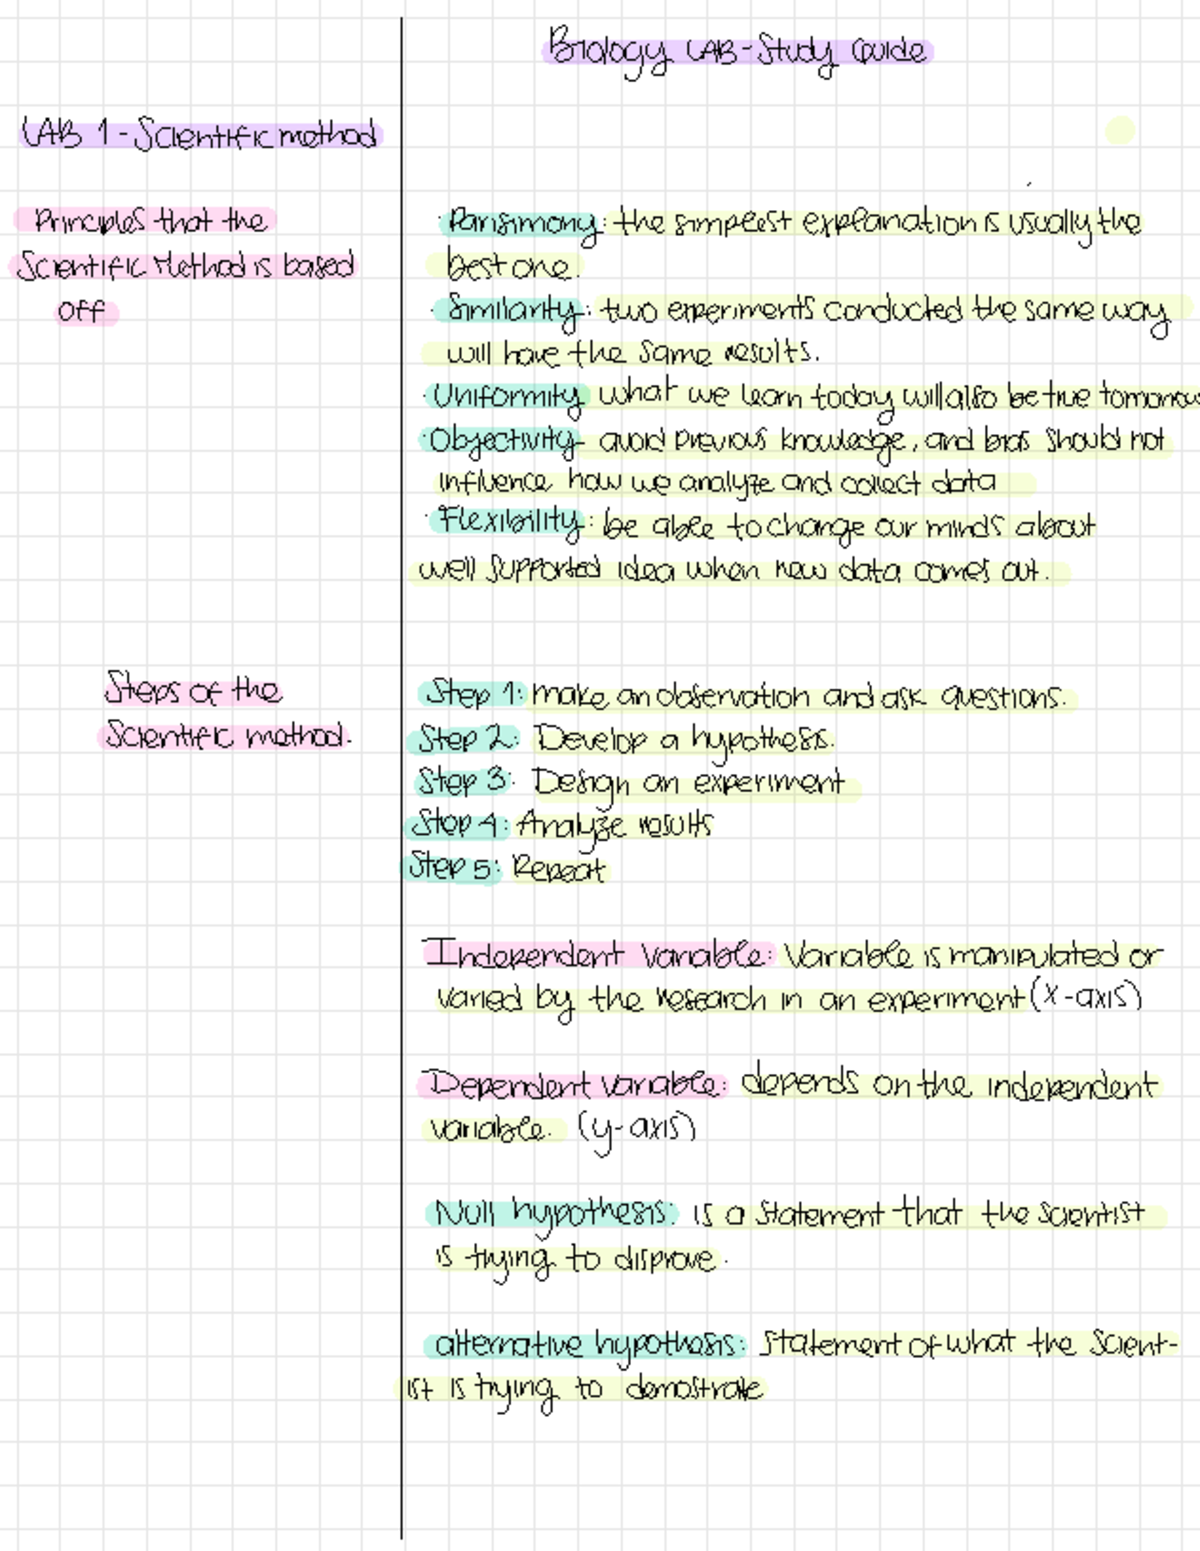 Biology LAB-Study Guide
LAB 1 - Scientific method
Principles that the
Scientific Method is based
off
· Parisimony: the simplest explanation is usually the
best one.
· Similarity: two experiments conducted the same way
will have the same results.
· Uniformity what we learn today will also be true tomorrow
· Objectivity- avoid previous knowledge, and bias should not
influence how we analyze and collect data
· Flexibility: be able to change our minds about
well supported idea when new data comes out.
Steps of the
Scientific method.
Step 1: make an observation and ask questions.
Step 2: Develop a hypothesis.
Step 3: Design an experiment
Step 4: Analyze results
Step 5: Repeat
Independent Variable: Variable is manipulated or
varied by the research in an experiment (x-axis)
Dependent variable: depends on the independent
variable. (y-axis)
Null hypothesis: is a statement that the scientist
is trying to disprove.
alternative hypothesis: statement of what the scient-
ist is trying to demostrate